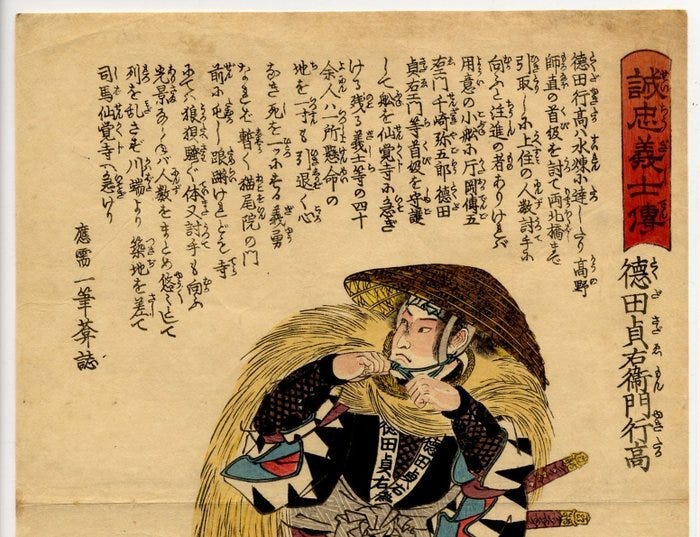 誠忠義士傳
德田貞右衞門行高
德田行高ハ水煉に達したり高野
師直の首級を討て両北橋まで
引取しに上住の人数討手に
向ふと注進の者ありければ
用意の小船に斤岡傳五
右エ門千崎弥五郎德田
貞右エ門等首級を守護
して船を仙覚寺に急ぎ
ける残る義士等の四十
余人ハ一所懸命の
地を一寸も引退く心
なき死を一ツにする義勇
なれど暫く猫尾院の門
前に屯し
寺
にてハ狼狽騒ぐ体又討手も向ふ
光景あらざれバ人数をまとめ悠々として
列を乱さず川端より築地を差て
司馬仙覚寺へ急げり
應需一筆葊誌
德田貞右衞
德田貞右